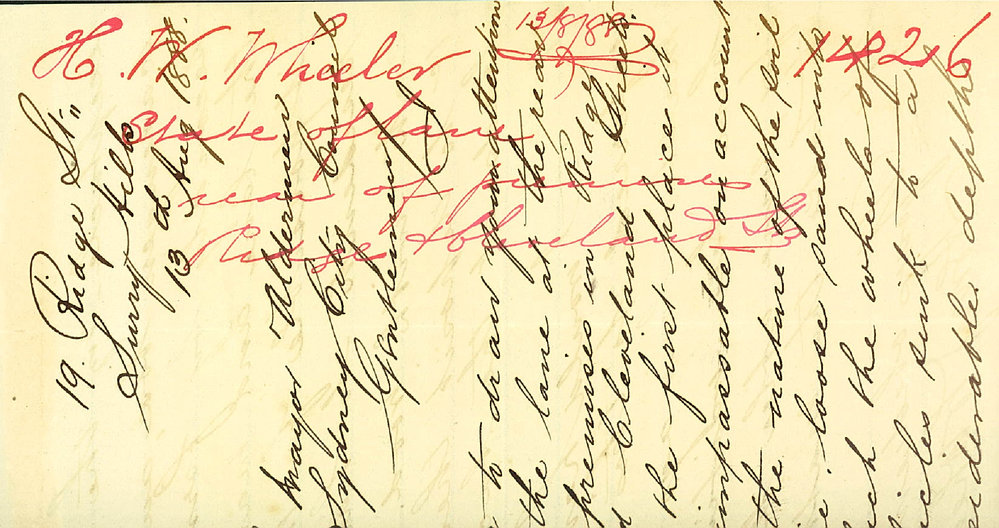 H. W. Wheeler
13/8/88
14216
State of lane
rear of premises
Ridge & Cleveland Sts
19. Ridge St.
Surry Hills
13th Aug 1888.
Mayor Aldermen
Sydney City Council
Gentlemen
to draw your attention
the lane at the rear
premises in Ridge
Cleveland Streets.
the first place it
impassable on account
the nature of the soil
loose sand into
the wheels of
sink to a
depth